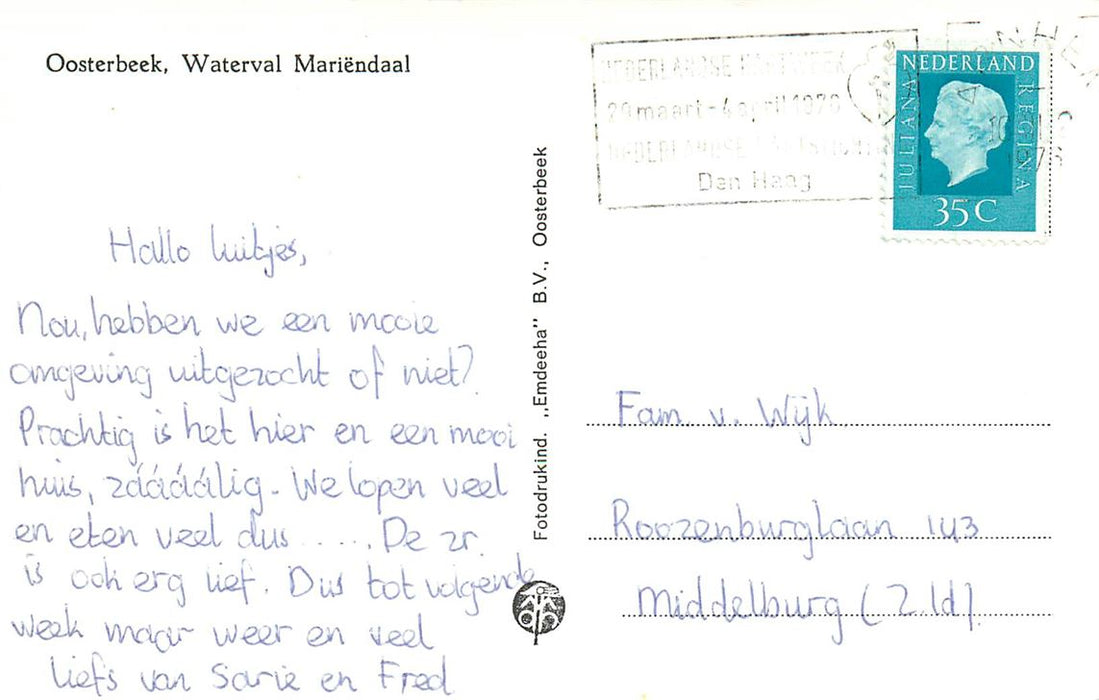 Oosterbeek, Waterval Mariëndaal
NEDERLANDSE HARTWEEK
29 maart - 4 april 1976
NEDERLANDSE HARTSTICHTING
Den Haag
ARNHEM
NEDERLAND
JULIANA
REGINA
35 C
Hallo luitjes,
Nou, hebben we een mooie
omgeving uitgezocht of niet?
Prachtig is het hier en een mooi
huis, zááááálig. We lopen veel
en eten veel dus ...... De zr.
is ook erg lief. Dus tot volgende
week maar weer en veel
liefs van Sarie en Fred
Fotodrukind. „Emdeeha" B.V., Oosterbeek
Fam. v. Wijk
Roozenburglaan 143
Middelburg (Zld).